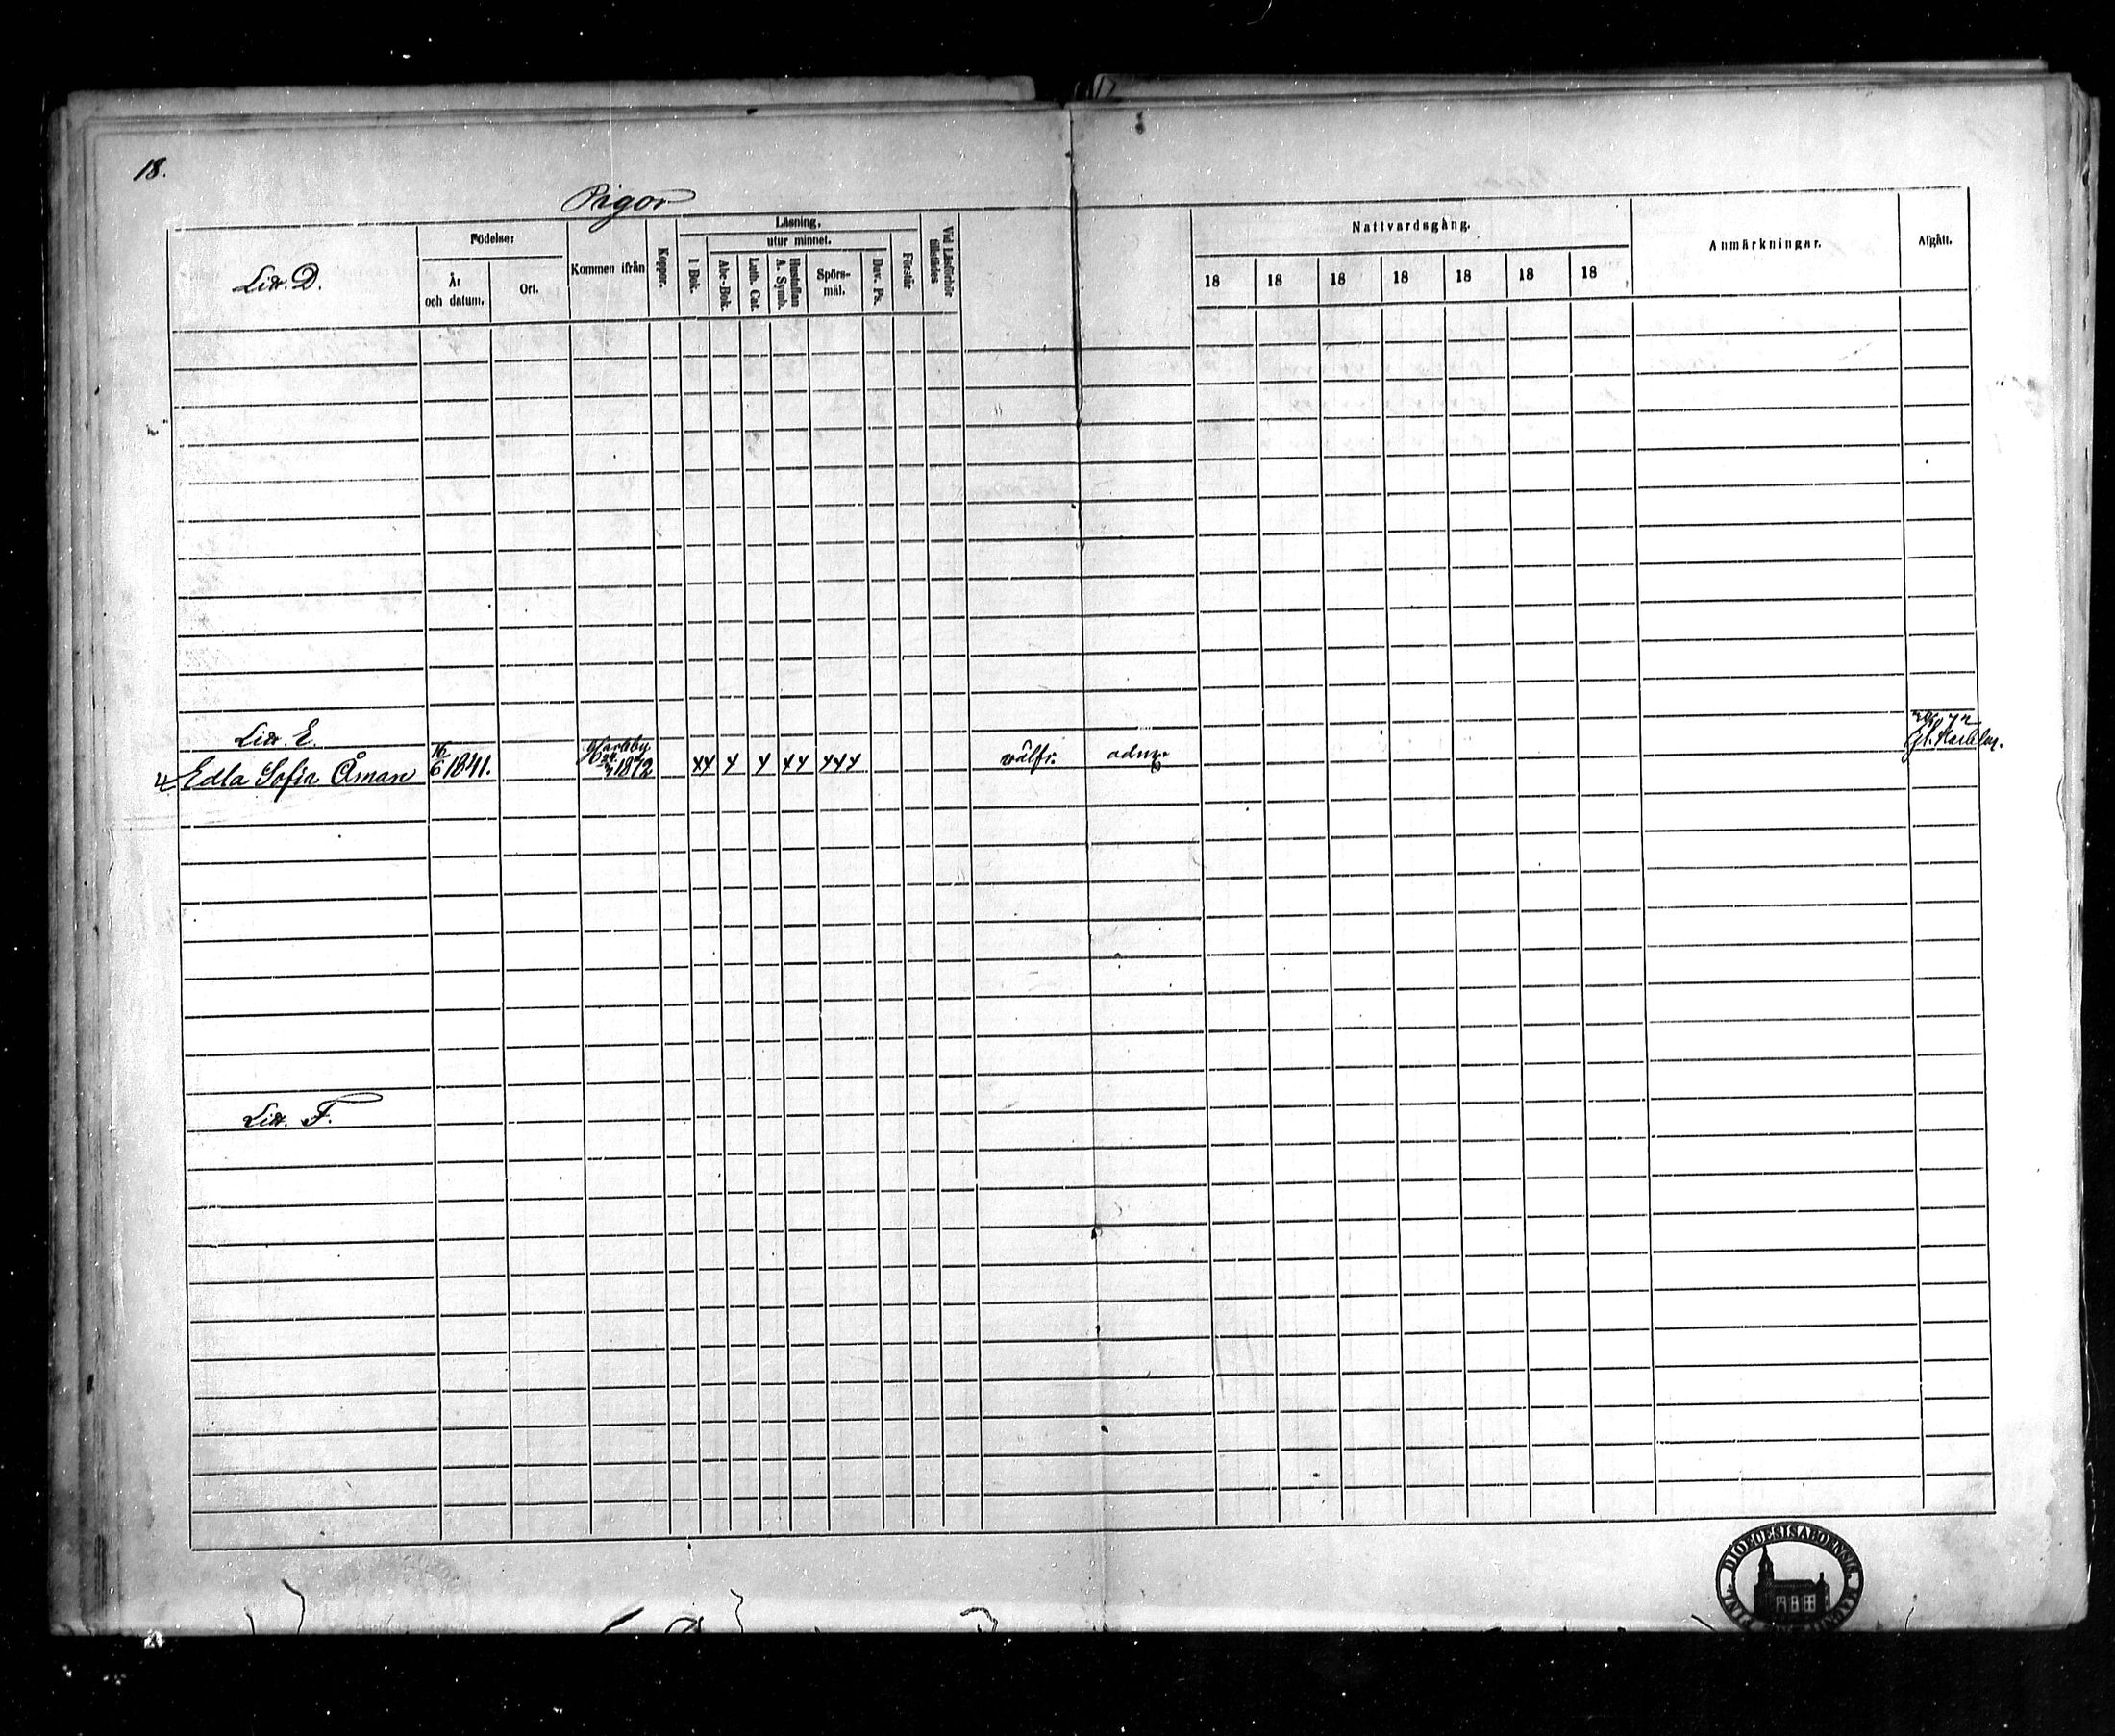 18.
Pigor
Litt. D.
Födelse:
År
och datum.
Ort.
Kommen ifrån
Koppor.
Läsning,
utur minnet.
I Bok.
Abc-Bok.
Luth. Cat.
Hustaflan
A. Symb.
Spörs-
mål.
Dav. Ps.
Förstår
Vid Läsförhör
tillstädes
Nattvardsgång.
18 18 18 18 18 18 18
Anmärkningar.
Afgått.
Litt. E.
Edla Sofia Åman 16/6 1841. Karleby 1872 xx x x xx xxx välfr. adm. Gl. Karleby.
Litt. F.
DIOECESIS ABOENSIS